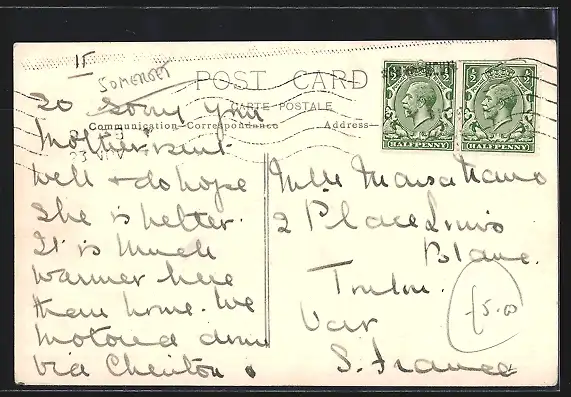 1F
SOMERSET
POST CARD
CARTE POSTALE
Communication-Correspondence
Address
HALFPENNY
HALFPENNY
So sorry your
Mother isn't
well & do hope
She is better.
It is Much
warmer here
than home. We
Motored down
via
Mlle
2 Place Louis
Blanc.
Toulon.
Var
S. France
£5.00